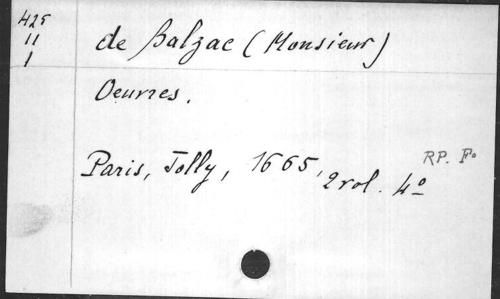 425
11
1
de Balzac (Monsieur)
Oeuvres.
Paris, Jolly, 1665,
2 vol. 4º
RP. Fo